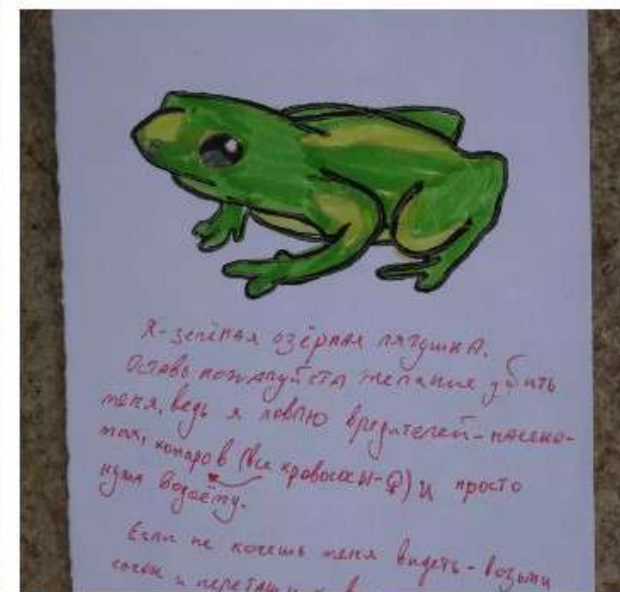 Я-зелёная озёрная лягушка.
Оставь пожалуйста желание убить
меня, ведь я ловлю вредителей-насеко-
мых, комаров (все кровососы-♀) и просто
нужна водоёму.
Если не хочешь меня видеть - возьми
сачок и перетащи